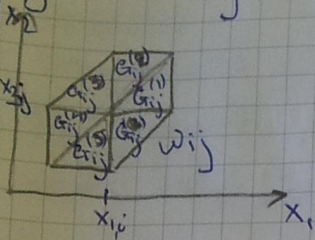 x₂
G_ij^(2)
G_ij^(3) G_ij^(1)
x₂j
G_ij^(4)
G_ij^(5) G_ij^(6)
ω_ij
x₁,i x₁